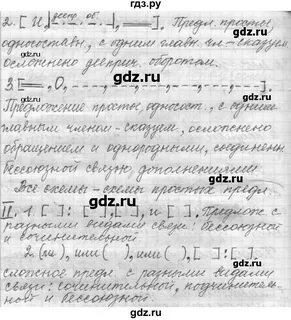 2. [ И |деепр. об.| ]. Предл. простое,
односоставн., с одним главн. чл.-сказуем.,
осложнено дееприч. оборотом.
3. [ , О, ].
Предложение простое, односост., с одним
главным членом-сказуем., осложнено
обращением и однородными, соединенн.
бессоюзной связью, дополнениями.
Все схемы-схемы простых предл.
II. 1. [ ]: [ ], [ ], и [ ]. Предлож. с
разными видами связи: бессоюзной
и сочинительной.
2. (ли), или ( ), или ( ), [ ]: [ ]
сложное предл. с разными видами
связи: сочинительной, подчинитель-
ной и бессоюзной.
gdz.ru
gdz.ru
gdz.ru
gdz.ru
gdz.ru
gdz.ru
gdz.ru